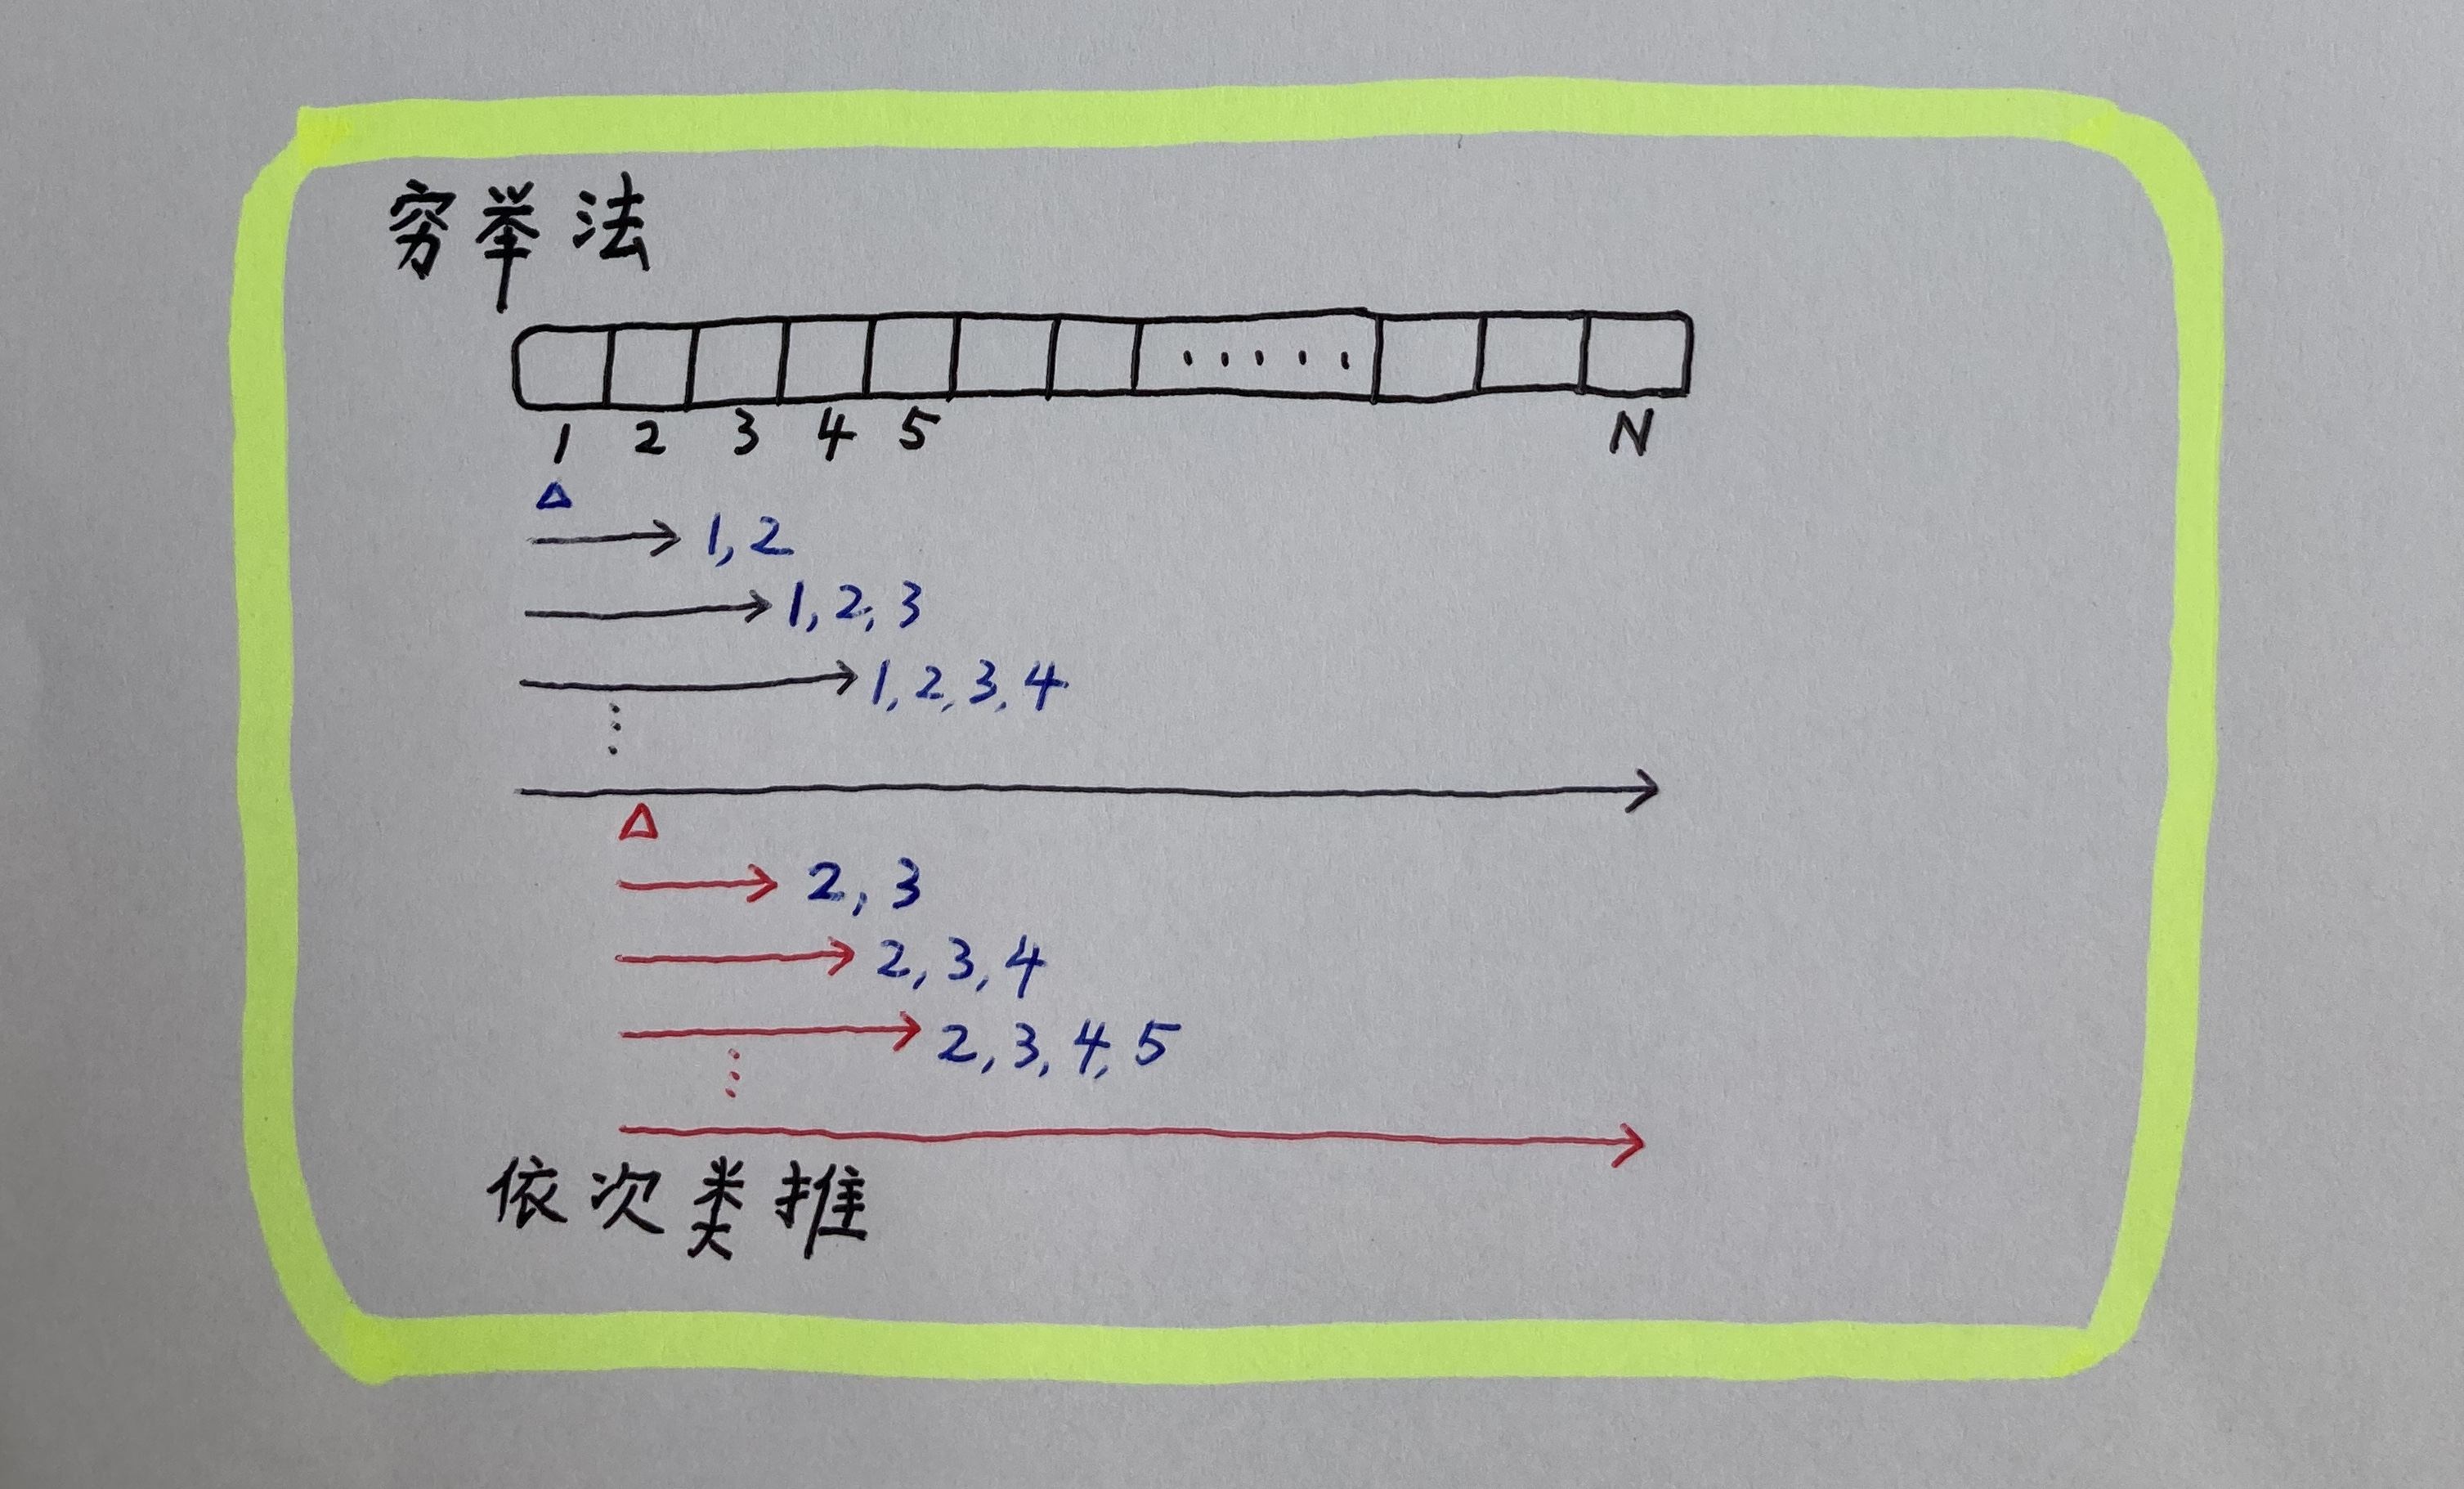 穷举法
.....
1 2 3 4 5 N
1,2
1,2,3
1,2,3,4
2,3
2,3,4
2,3,4,5
依次类推